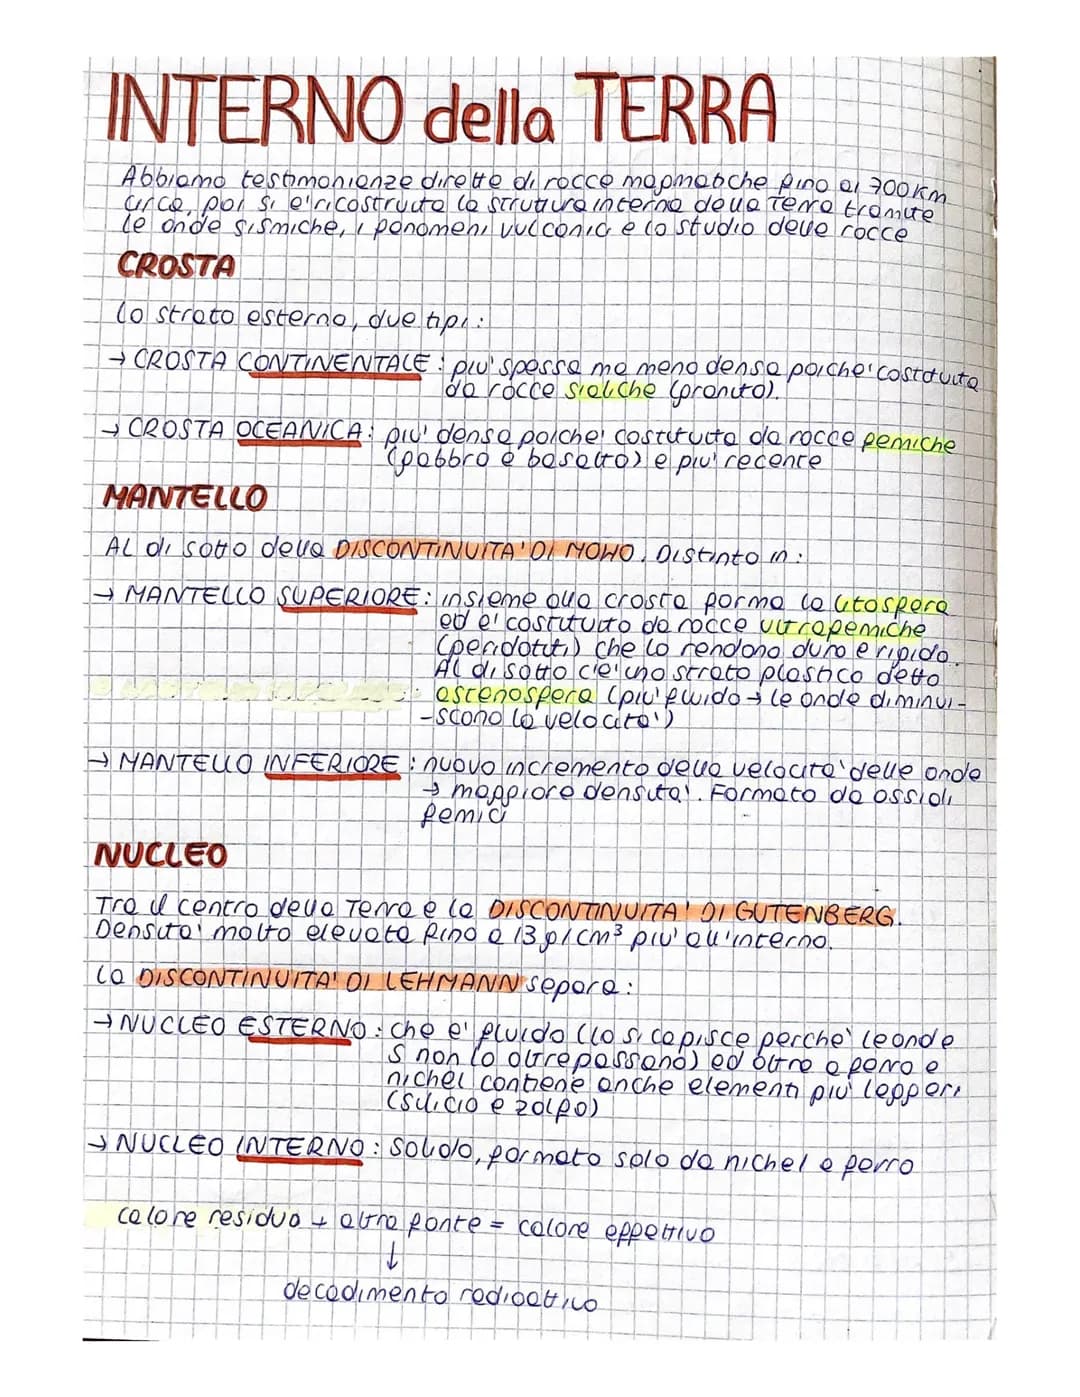 INTERNO della TERRA
Abbiamo testimonianze dirette di rocce magmatiche fino ai 700km
circa, poi si e' ricostruita la struttura interna della Terra tramite
le onde sismiche, i fenomeni vulcanici e lo studio delle rocce
CROSTA
lo strato esterno, due tipi:
→ CROSTA CONTINENTALE: piu' spessa ma meno densa poiche' costituita
da rocce sialiche (granito).
→ CROSTA OCEANICA: piu' densa poiche' costituita da rocce femiche
(gabbro e basalto) e piu' recente
MANTELLO
AL di sotto della DISCONTINUITA' DI MOHO. Distinto in:
→ MANTELLO SUPERIORE: insieme alla crosta forma la litosfera
ed e' costituito da rocce ultrafemiche
(peridotiti) che lo rendono duro e rigido.
Al di sotto c'e' uno strato plastico detto
astenosfera (piu' fluido → le onde diminui-
-scono la velocita')
→ MANTELLO INFERIORE: nuovo incremento della velocita' delle onde
→ maggiore densita'. Formato da ossidi
femici
NUCLEO
Tra il centro della Terra e la DISCONTINUITA' DI GUTENBERG.
Densita' molto elevata fino a 13 g/cm³ piu' all'interno.
La DISCONTINUITA' DI LEHMANN separa:
→ NUCLEO ESTERNO: che e' fluido (lo si capisce perche' le onde
S non lo oltrepassano) ed oltre a ferro e
nichel contiene anche elementi piu' leggeri
(silicio e zolfo)
→ NUCLEO INTERNO: solido, formato solo da nichel e ferro
calore residuo + altra fonte = calore effettivo
↓
decadimento radioattivo